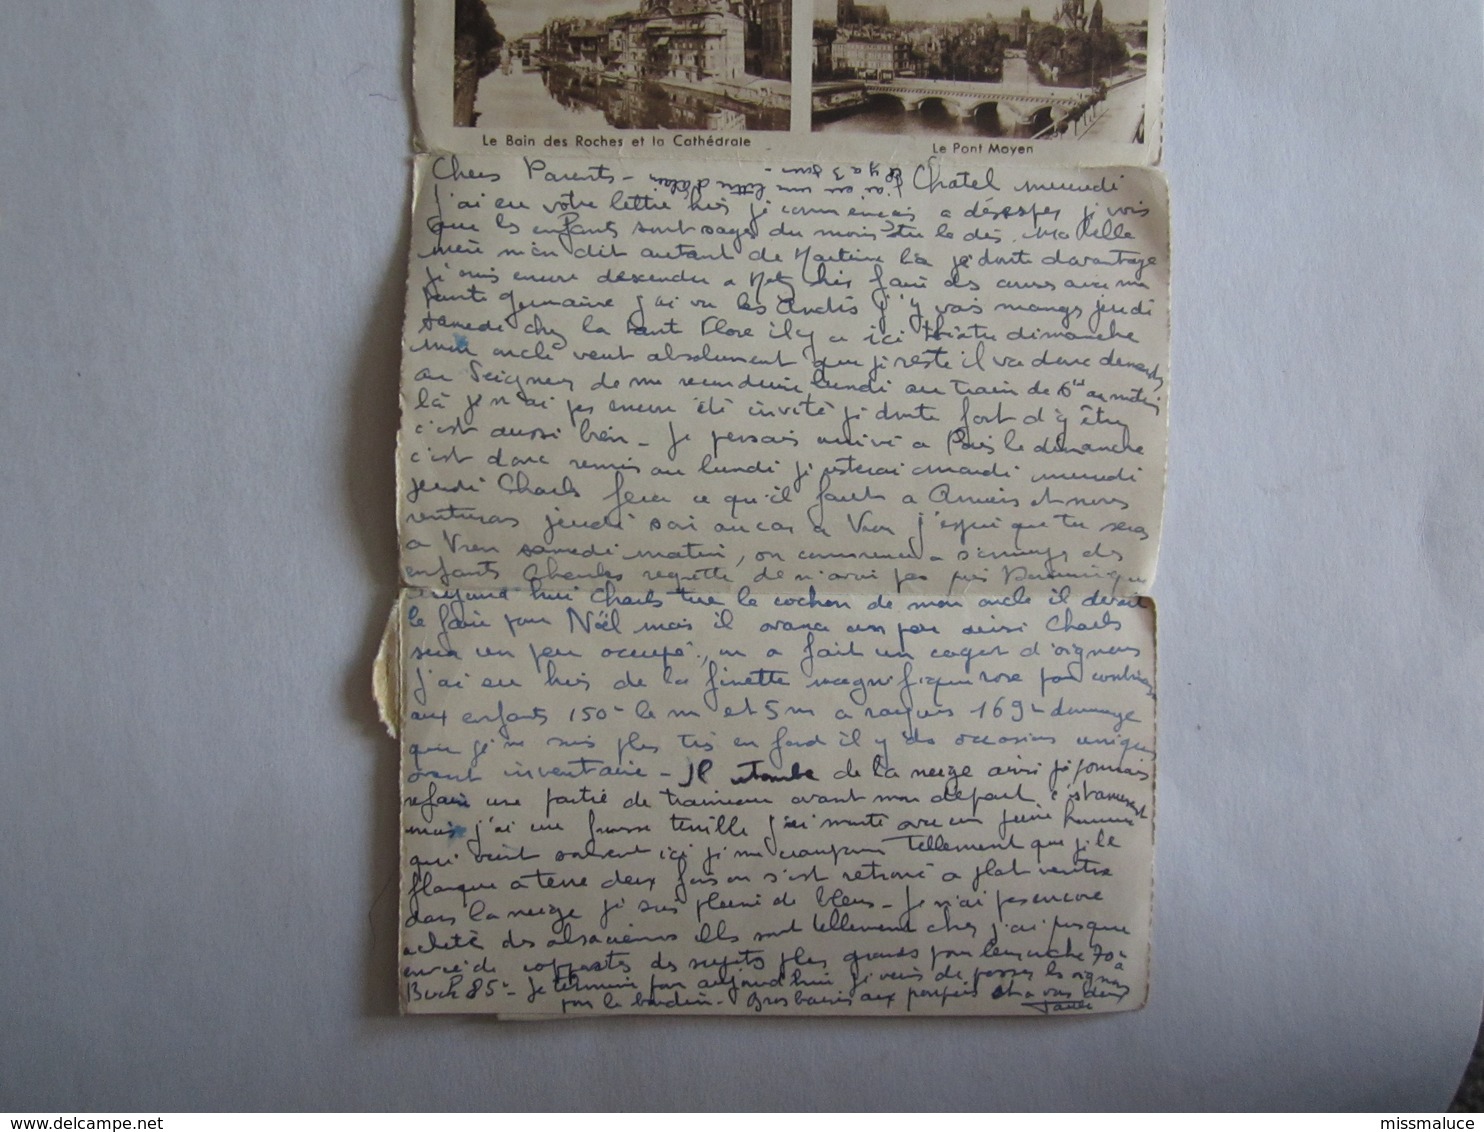 Le Bain des Roches et la Cathédrale
Le Pont Moyen
Chers Parents - Chatel mercredi
j'ai eu une lettre d'Alain il y a 3 jours -
j'ai eu votre lettre hier je commençais a désespérer je vois
que les enfants sont sages du moins tu le dis. Ma belle
mère m'en dit autant de Martine là je doute davantage
je suis encore descendue a Metz hier faire des courses avec ma
tante Germaine j'ai vu les Andrés j'y vais manger jeudi
samedi chez la tante Flore il y a ici théatre dimanche
Mon oncle veut absolument que je reste il va donc demander
au Seigneur de me reconduire lundi au train de 6h au matin
là je n'ai pas encore été invité je doute fort d'y être
c'est aussi bien - Je pensais arrivé a Paris le dimanche
c'est donc remis au lundi je resterai mardi mercredi
jeudi Charles fera ce qu'il faut a Amiens et nous
rentrerons jeudi soir au cas a Vron j'espère que tu seras
a Vron samedi matin, on commence a s'ennuyer des
enfants Charles regrette de n'avoir pas pris Dominique
aujourd'hui Charles tue le cochon de mon oncle il devait
le faire pour Noël mais il avance un peu ainsi Charles
sera un peu occupé, on a fait un cageot d'oignons
j'ai eu hier de la finette magnifique rose pour
aux enfants 150 le m et 5m a rayures 169 dommage
que je ne suis plus très en fond il y a des occasions uniques
avant inventaire - Il retombe de la neige ainsi je pourrais
refaire une partie de traineau avant mon départ c'est amusant
mais j'ai une frousse terrible j'ai monté avec un jeune homme
qui vient souvent ici je me cramponne tellement que je le
flanque a terre deux fois on s'est retrouvé a plat ventre
dans la neige je suis pleine de bleus - Je n'ai pas encore
acheté des alsaciennes elles sont tellement chers j'ai presque
envie de des sujets plus grands pour 70 a
85 - Je termine pour aujourd'hui je viens de passer les oignons
pour le boudin - Gros baisers aux et a vous deux